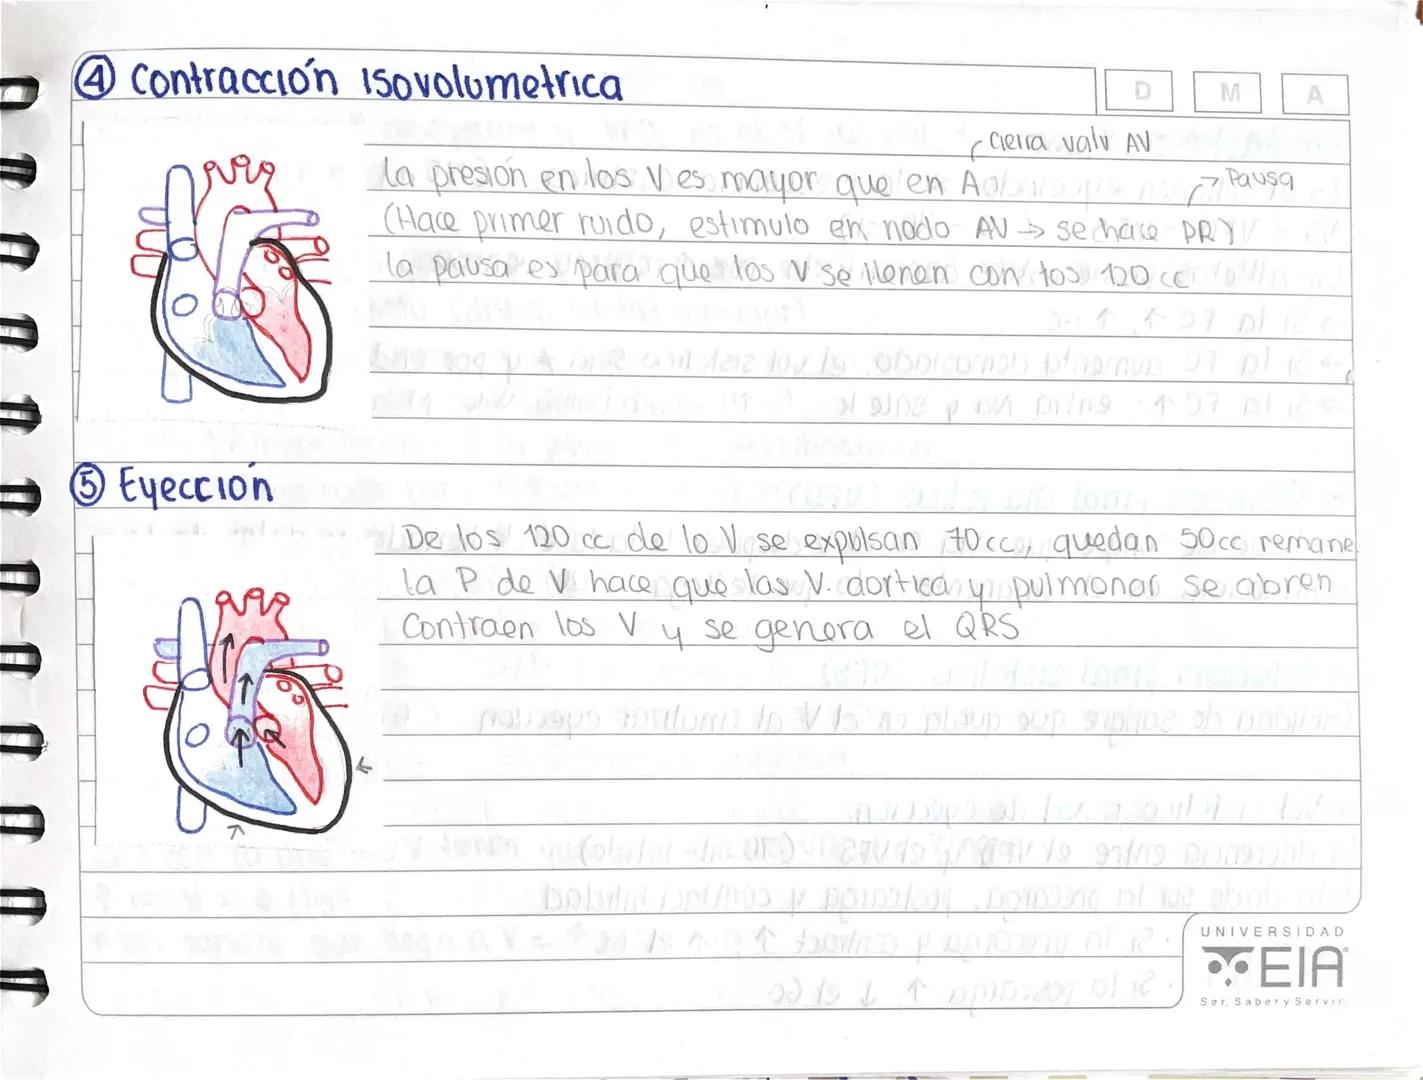 ④ Contracción Isovolumetrica
D M A
cierra valv AV
la presión en los V es mayor que en A
→ Pausa
(Hace primer ruido, estimulo en nodo AV → se hace PR)
la pausa es para que los V se llenen con los 120 cc
⑤ Eyección
De los 120 cc de lo V se expulsan 70 cc, quedan 50cc remane.
la P de V hace que las V. aortica y pulmonar se abren
Contraen los V y se genera el QRS
UNIVERSIDAD
EIA
Ser, Saber y Servir